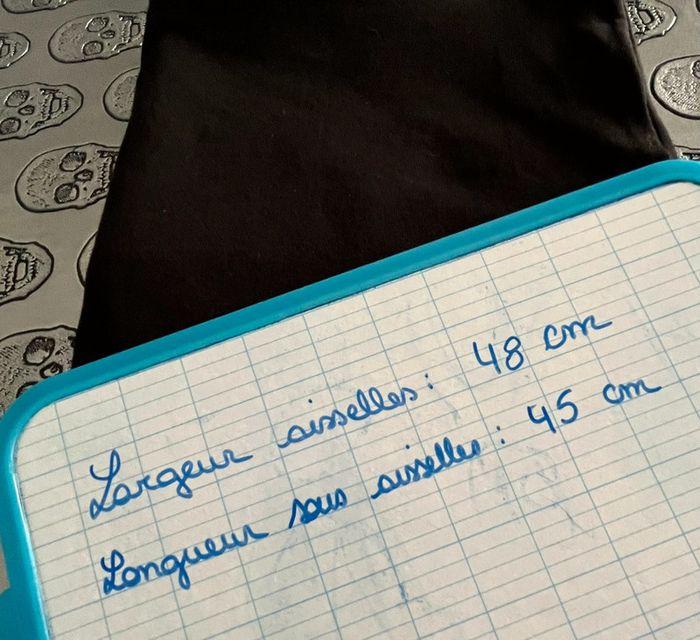 Largeur aisselles : 48 cm
Longueur sous aisselles : 45 cm